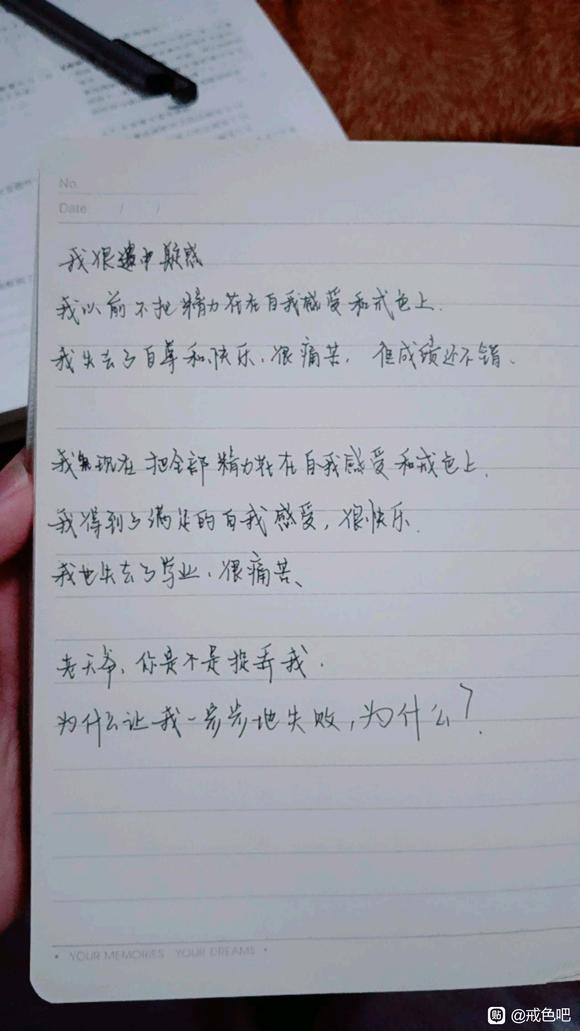 No.
Date / /
我很遗中疑惑
我以前不把精力花在自我感受和戒色上.
我失去了自尊和快乐.很痛苦,但成绩还不错.
我现在把全部精力花在自我感受和戒色上.
我得到了满足的自我感受,很快乐.
我也失去了学业.很痛苦、
老天爷,你是不是捉弄我.
为什么让我一步步地失败,为什么?
• YOUR MEMORIES YOUR DREAMS •
贴 @戒色吧